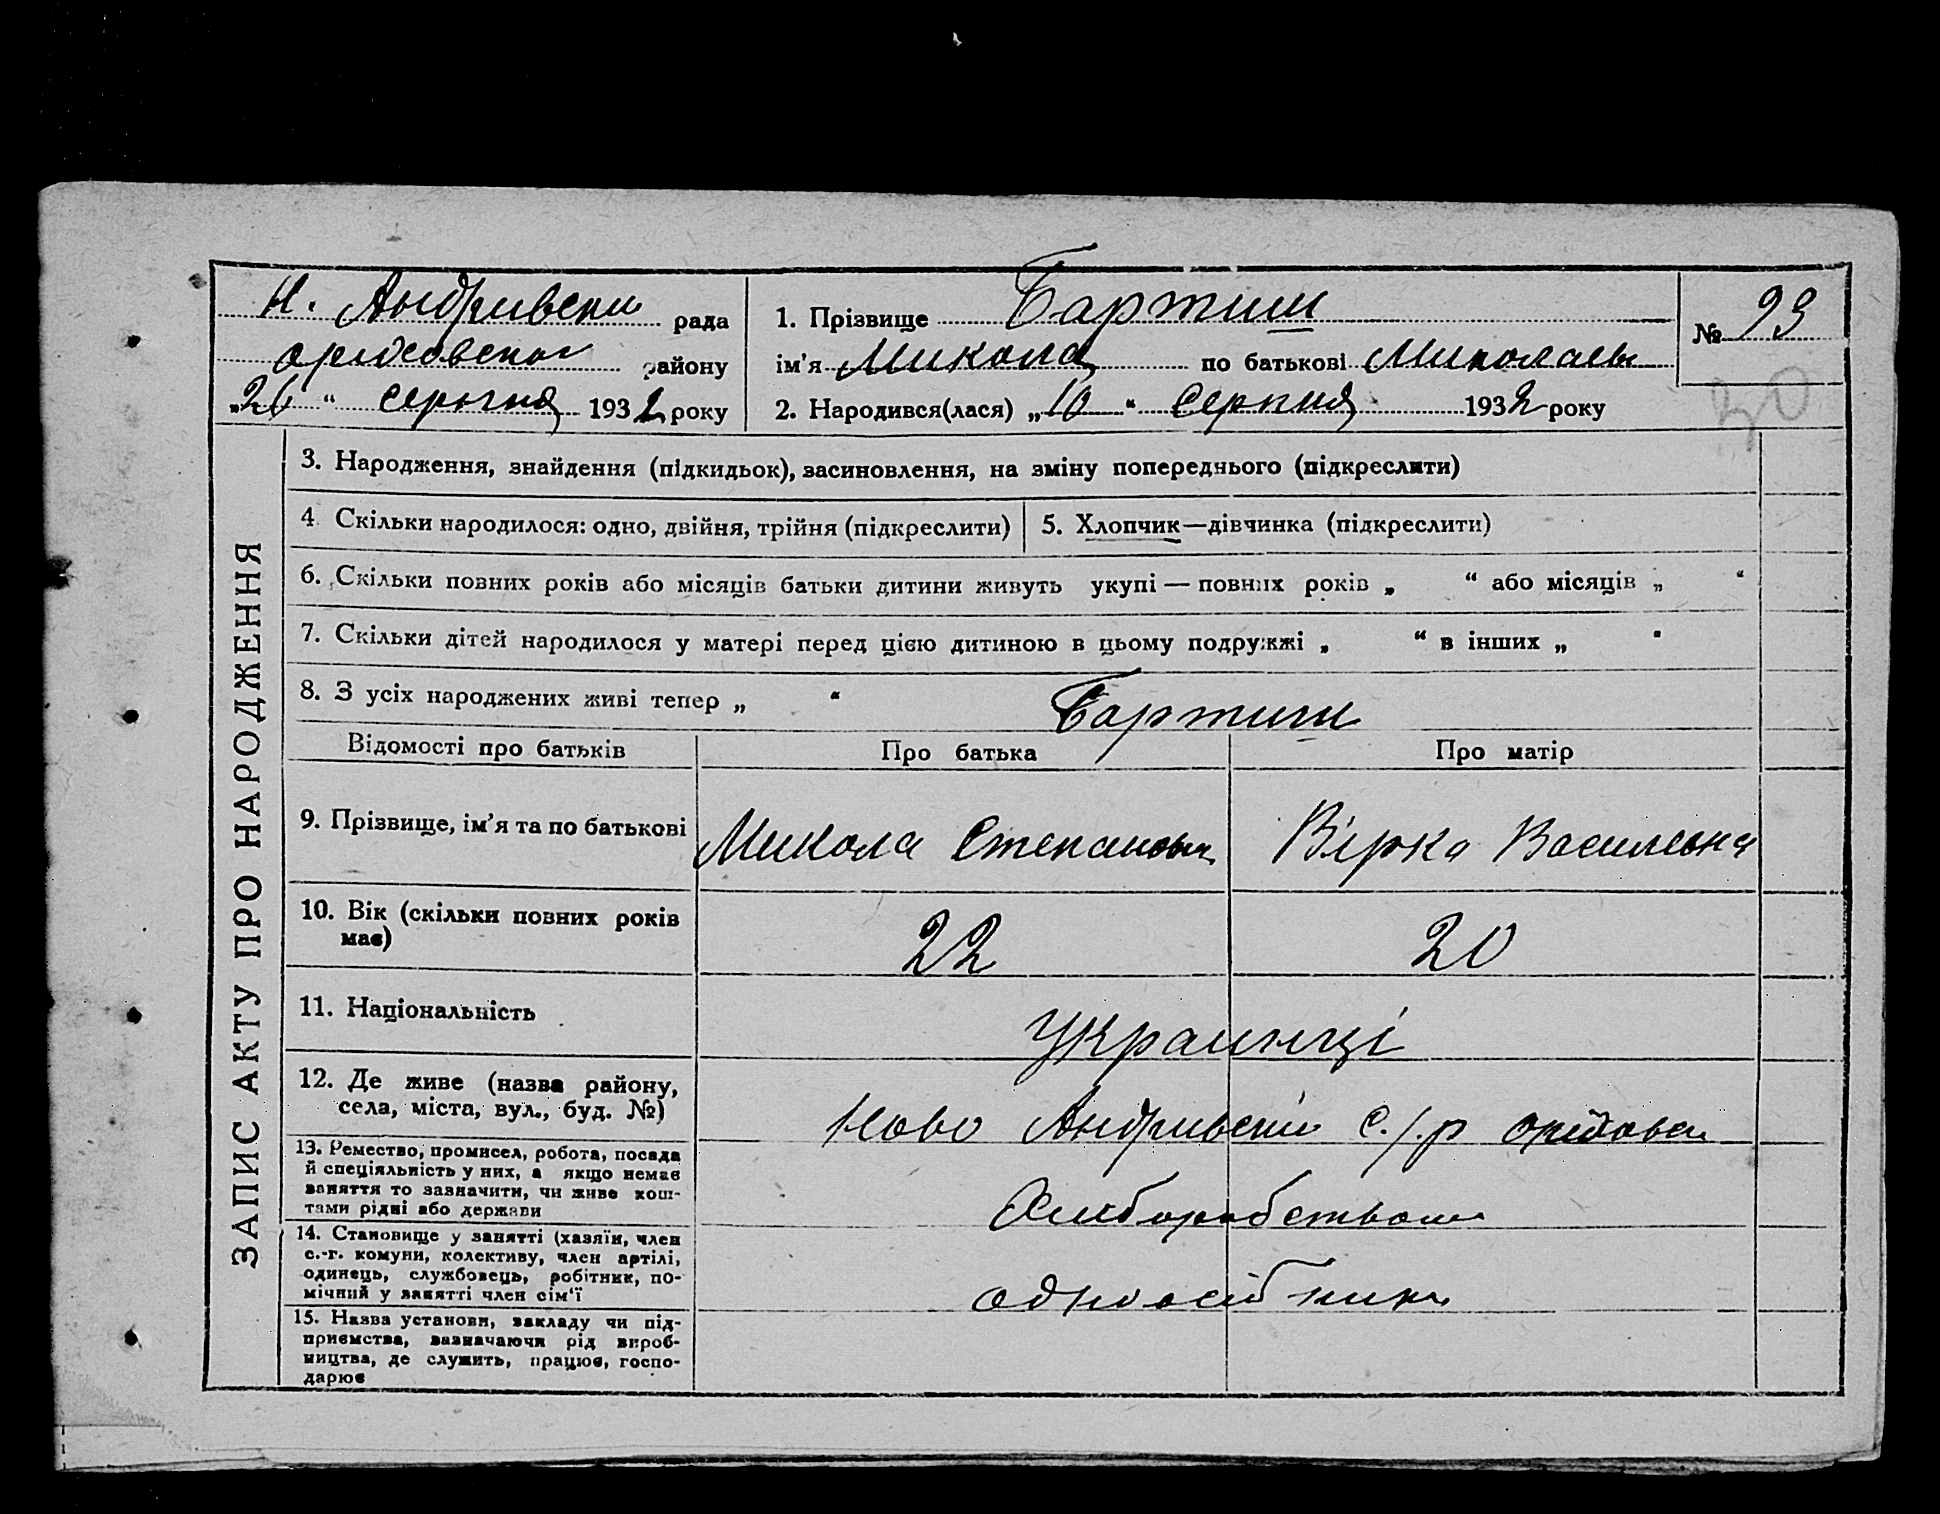 Н. Андривски рада
району
„26“ серпня 1932 року
1. Прізвище Бартиш
ім'я Микола по батькові Миколаев
2. Народився(лася) „10“ Серпня 1932 року
№ 93
30
ЗАПИС АКТУ ПРО НАРОДЖЕННЯ
3. Народження, знайдення (підкидьок), засиновлення, на зміну попереднього (підкреслити)
4 Скільки народилося: одно, двійня, трійня (підкреслити)
5. Хлопчик—дівчинка (підкреслити)
6. Скільки повних років або місяців батьки дитини живуть укупі — повних років „ “ або місяців „ “
7. Скільки дітей народилося у матері перед цією дитиною в цьому подружжі „ “ в інших „ “
8. З усіх народжених живі тепер „ “
Бартиш
Відомості про батьків Про батька Про матір
9. Прізвище, ім'я та по батькові Микола Степанович Вірка Василевна
10. Вік (скільки повних років має) 22 20
11. Національність Украинці
12. Де живе (назва району,
села, міста, вул., буд. №) Ново Андривски с/р
13. Ремество, промисел, робота, посада
й спеціяльність у них, а якщо немає
заняття то зазначити, чи живе кош-
тами рідні або держави
Хлиборобством
14. Становище у занятті (хазяїн, член
с.-г. комуни, колективу, член артілі,
одинець, службовець, робітник, по-
мічний у занятті член сім'ї
одноосібники
15. Назва установи, закладу чи під-
приємства, зазначаючи рід вироб-
ництва, де служить, працює, госпо-
дарює